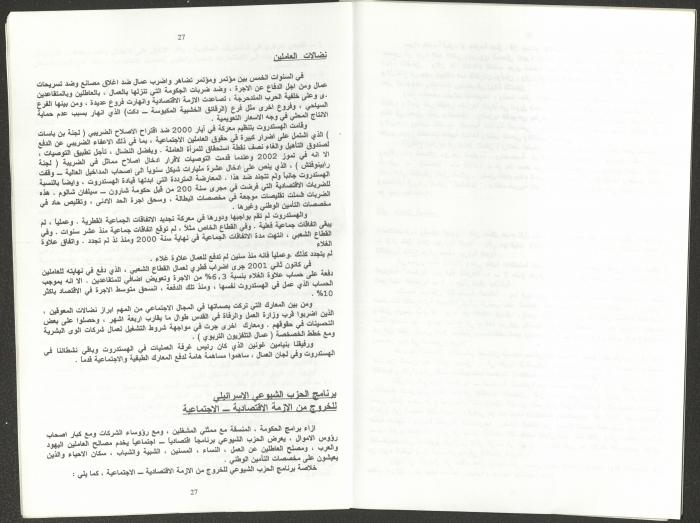 27
نضالات العاملين
في السنوات الخمس بين مؤتمر ومؤتمر تظاهر واضرب عمال ضد اغلاق مصانع وضد تسريحات
عمال ومن اجل الدفاع عن الاجرة ، وضد ضربات الحكومة التي تنزلها بالعمال ، بالعاطلين وبالمتقاعدين
.ى وعلى خلفية الحرب المتدحرجة ، تصاعدت الازمة الاقتصادية وانهارت فروع عديدة ، ومن بينها الفرع
السياحي ، وفروع اخرى مثل فرع (الرقائق الخشبية المكبوسة – دكت) الذي انهار بسبب عدم حماية
الانتاج المحلي في وجه الاسعار التعويمية .
وقامت الهستدروت بتنظيم معركة في أيار 2000 ضد اقتراح الاصلاح الضريبي ( لجنة بن باسات
) الذي اشتمل على اضرار كبيرة في حقوق العاملين الاجتماعية ، بما في ذلك الاعفاء الضريبي عن الدفع
لصندوق التأهيل والغاء نصف نقطة استحقاق للمرأة العاملة . وبفضل النضال ، تأجل تطبيق التوصيات ،
الا انه في تموز 2002 وعندما قدمت التوصيات لاقرار ادخال اصلاح مماثل في الضريبة ( لجنة
رابينوفتش ) ، الذي ينص على ادخال عشرة مليارات شيكل سنويا الى اصحاب المداخيل العالية – وقفت
الهستدروت جانباً ولم تتجند ضد هذا . المعارضة المترددة التي ابدتها قيادة الهستدروت ، وايضاً بالنسبة
للضربات الاقتصادية التي فرضت في مجرى سنة 200 من قبل حكومة شارون – سيلفان شالوم . هذه
الضربات شملت تقليصات موجعة في مخصصات البطالة ، وسحق اجرة الحد الادنى ، وتقليص حاد في
مخصصات التأمين الوطني وغيرها .
والهستدروت لم تقم بواجبها ودورها في معركة تجديد الاتفاقات الجماعية القطرية . وعملياً ، لم
يبقى اتفاقات جماعية فعلية . وفي القطاع الخاص مثلاً ، لم توقع اتفاقات جماعية منذ عشر سنوات . وفي
القطاع الشعبي ، انتهت مدة الاتفاقات الجماعية في نهاية سنة 2000 ومنذ لم تجدد . واتفاق علاوة
الغلاء
لم يتجدد كذلك .وعملياً فانه منذ سنين لم تدفع للعمال علاوة غلاء .
في كانون ثاني 2001 جرى اضراب قطري لعمال القطاع الشعبي ، الذي دفع في نهايته للعاملين
دفعة على حساب علاوة الغلاء بنسبة 3‚6% من الاجرة وتعويض اضافي للمتقاعدين . الا انه بموجب
الحساب الذي عمل في الهستدروت نفسها ، ومنذ تلك الدفعة ، انسحق متوسط الاجرة في الاقتصاد باكثر
10% .
ومن بين المعارك التي تركت بصماتها في المجال الاجتماعي من المهم ابراز نضالات المعوقين ،
الذين اضربوا قرب وزارة العمل والرفاه في القدس طوال ما يقارب اربعة اشهر ، وحصلوا على بعض
التحسينات في حقوقهم . ومعارك اخرى جرت في مواجهة شروط التشغيل لعمال شركات الوى البشرية
ومع خطط الخصخصة ( عمال التلفزيون التربوي ) .
ورفيقنا بنيامين غونين الذي كان رئيس غرفة العمليات في الهستدروت وباقي نشطائنا في
الهستدروت وفي لجان العمال ، ساهموا مساهمة هامة لدفع المعارك الطبقية والاجتماعية قدماً .
برنامج الحزب الشيوعي الاسرائيلي
للخروج من الازمة الاقتصادية – الاجتماعية
ازاء برامج الحكومة ، المنسقة مع ممثلي المشغلين ، ومع رؤوساء الشركات ومع كبار اصحاب
رؤوس الاموال ، يعرض الحزب الشيوعي برنامجاً اقتصادياً – اجتماعياً يخدم مصالح العاملين اليهود
والعرب ، ومصلح العاطلين عن العمل ، النساء ، المسنين ، الشبيبة والشباب ، سكان الاحياء والذين
يعيشون على مخصصات التأمين الوطني .
خلاصة برنامج الحزب الشيوعي للخروج من الازمة الاقتصادية – الاجتماعية ، كما يلي :
27